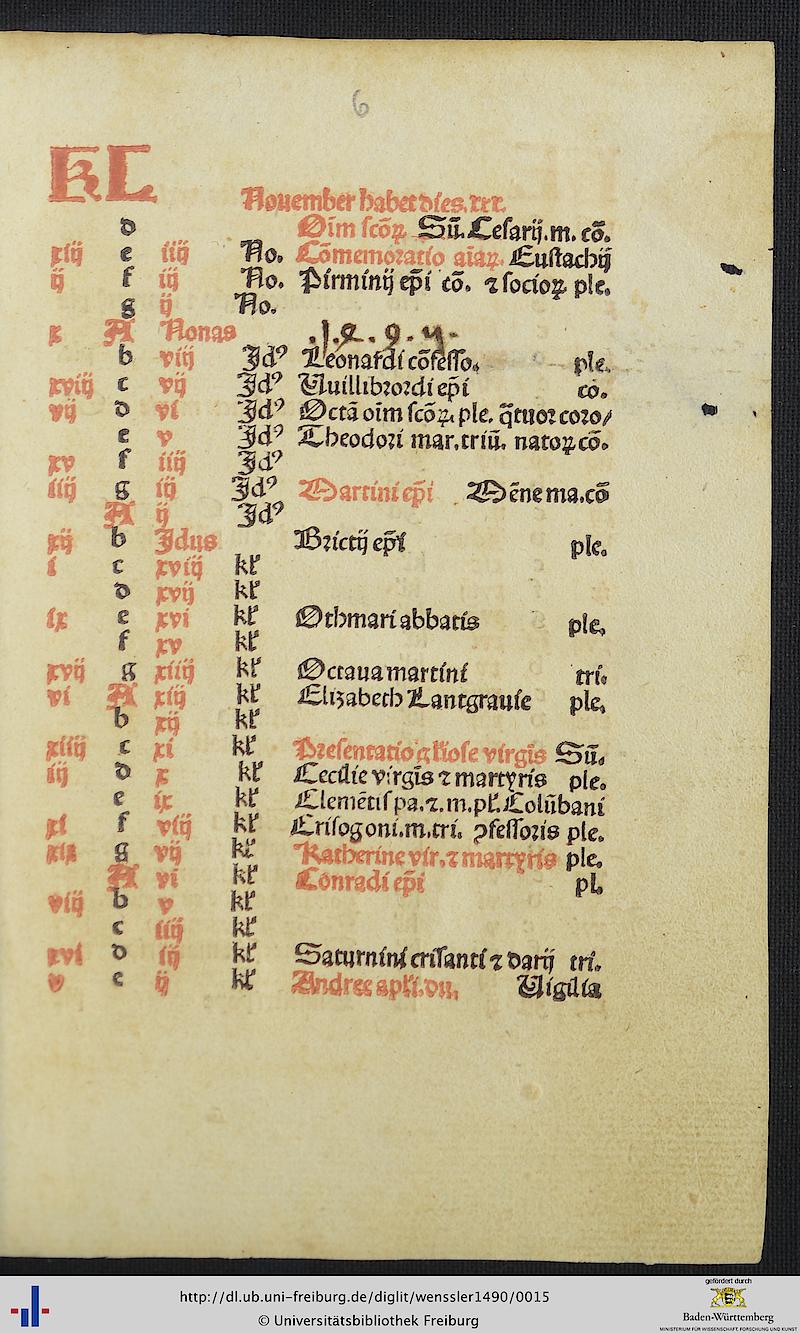 6
KL
Nouember habet dies.xxx.
d Oim̄ scōꝝ Sū. Cesarij.m. cō.
xiij e iiij No. Cōmemoratio aīaꝝ. Eustachij
ij f iij No. Pirminij ep̄i cō. ⁊ socioꝝ ple.
g ij No.
x A Nonas
b viij Jdꝰ Leonardi cōfesso. ple.
xviij c vij Jdꝰ Uuillibrordi ep̄i co.
vij d vi Jdꝰ Octā oim̄ scōꝝ. ple. q̄tuor coro/
e v Jdꝰ Theodori mar.triū. natoꝝ cō.
xv f iiij Jdꝰ
iiij g iij Jdꝰ Martini ep̄i Mēne ma.cō
A ij Jdꝰ
xij b Jdus Brictij ep̄i ple.
i c xviij kł
d xvij kł
ix e xvi kł Othmari abbatis ple.
f xv kł
xvij g xiiij kł Octaua martini tri.
vi A xiij kł Elizabeth Lantgrauie ple.
b xij kł
xiiij c xi kł Presentatio gł̄iose virgīs Sū.
iij d x kł Cecilie virgīs ⁊ martyris ple.
e ix kł Clemētis pa.⁊.m.pł. Colūbani
xi f viij kł Crisogoni.m.tri. ꝯfessoris ple.
xix g vij kł Katherine vir.⁊ martyris ple.
A vi kł Conradi ep̄i pl.
viij b v kł
c iiij kł
xvi d iij kł Saturnini crisanti ⁊ darij tri.
v e ij kł Andree apłi.du. Uigilia
http://dl.ub.uni-freiburg.de/diglit/wenssler1490/0015
© Universitätsbibliothek Freiburg
gefördert durch
Baden-Württemberg
MINISTERIUM FÜR WISSENSCHAFT, FORSCHUNG UND KUNST